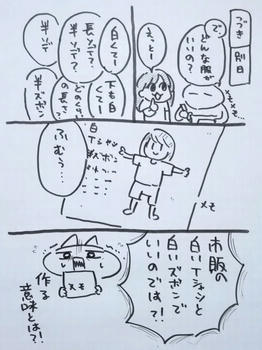 つづき 別日
で、
どんな服が
いいの？
えっとー
メモメモ…
白くてー
長ソデ？
半ソデ？
半ソデ
下も白
くてー
どのくらい
の長さ？
半ズボン
白
Tシャツ
半ズボン
メモ
ふむぅ…
市販の
白いTシャツと
白いズボンで
いいのでは？！
メモ
作る
意味とは？！